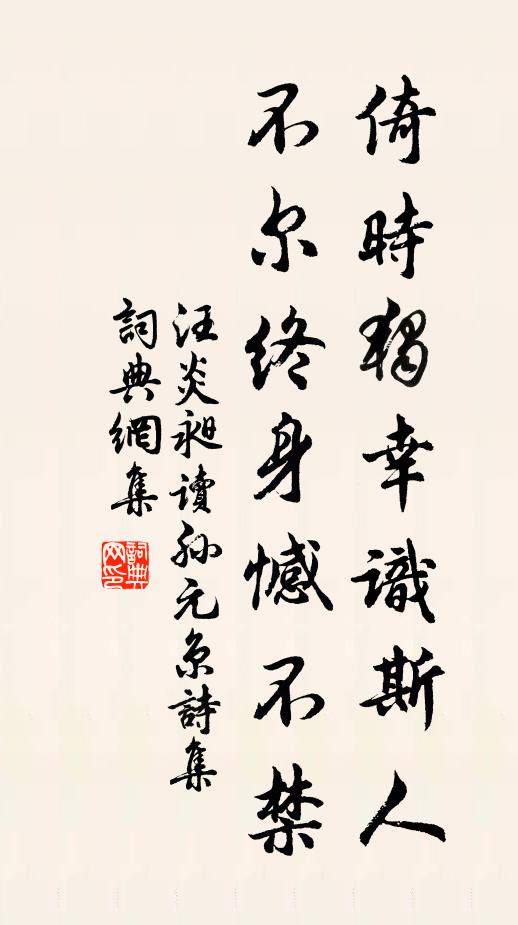 倚時獨幸識斯人
不尔終身憾不禁
汪炎昶讀孫元京詩集
詞典網集
詞典网印